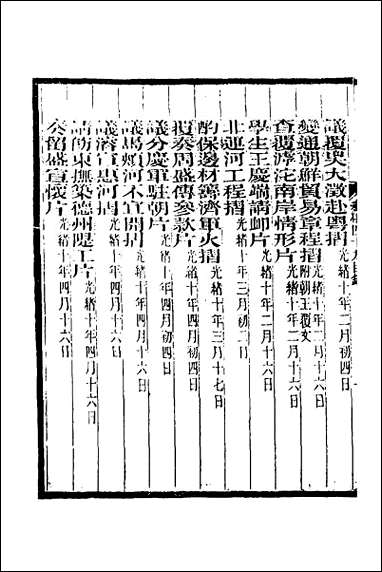 議覆吳大澂赴粵摺光緒十年二月初四日
變通朝鮮貿易章程摺附朝王覆文光緒十年二月十六日
查覆滹沱南岸情形片光緒十年二月十六日
學生王慶端請卹片光緒十年二月十六日
北運河工程摺光緒十年三月初二日
酌保邊材籌濟軍火摺光緒十年三月十七日
覆奏周盛傳參款片光緒十年四月初四日
議分慶軍駐朝片光緒十年四月初四日
議馬頰河不宜開摺光緒十年四月十六日
議濬宣惠河摺光緒十年四月十六日
請飭東撫築德州隄工片光緒十年四月十六日
奏留盛宣懷片光緒十年四月十六日